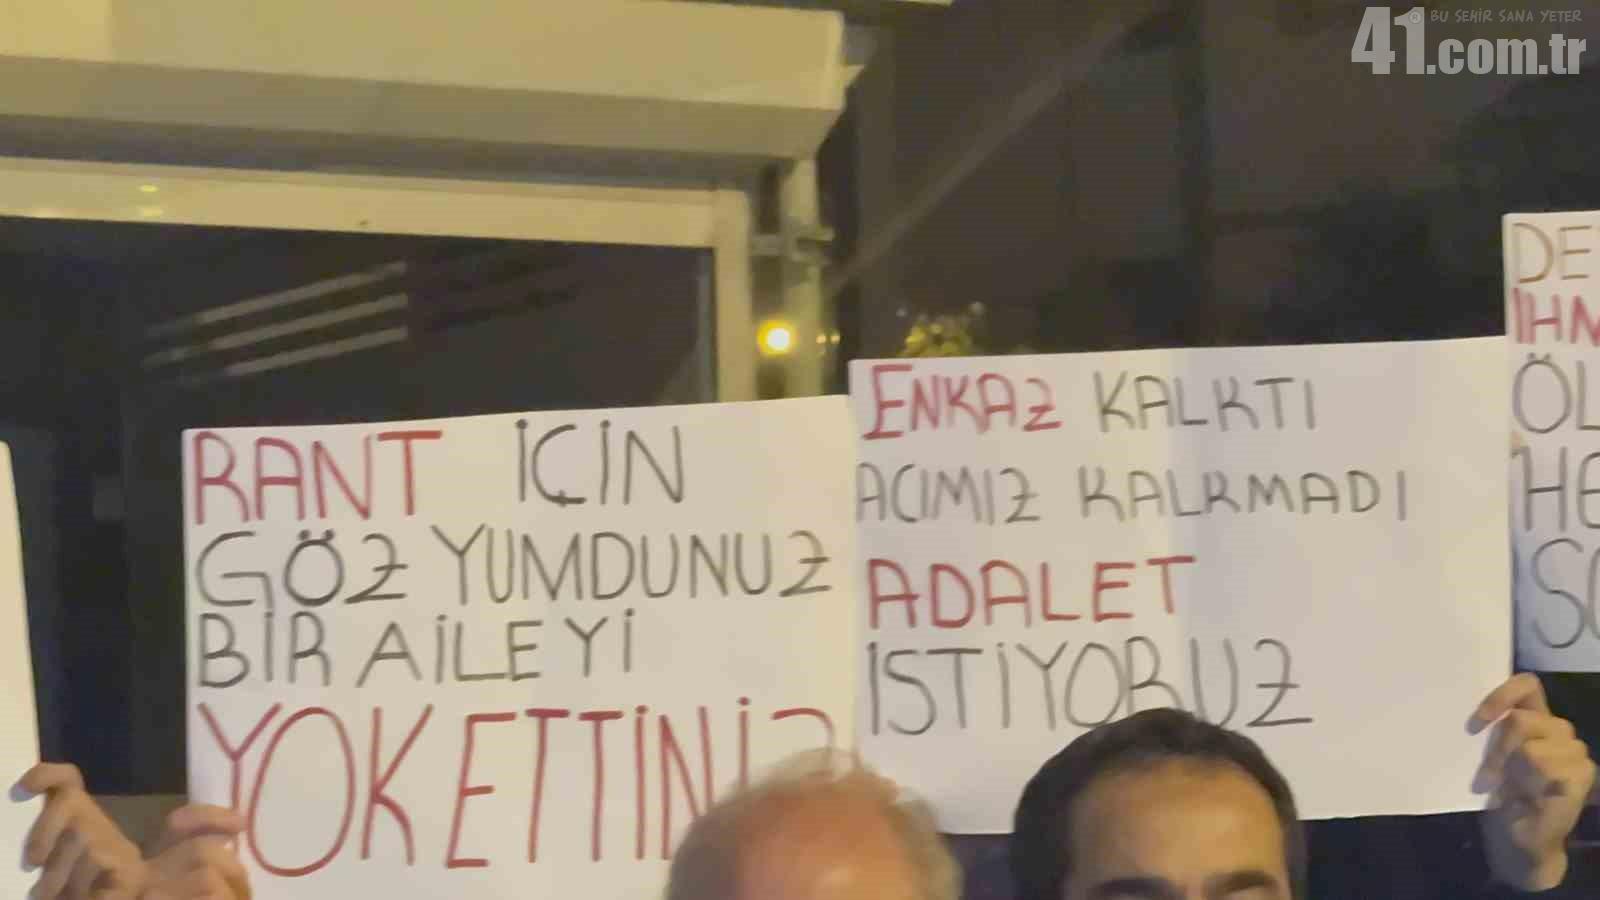 BU ŞEHİR SANA YETER
41.com.tr
RANT İÇİN
GÖZ YUMDUNUZ
BİR AİLEYİ
YOK ETTİNİZ
ENKAZ KALKTI
ACIMIZ KALKMADI
ADALET
İSTİYORUZ